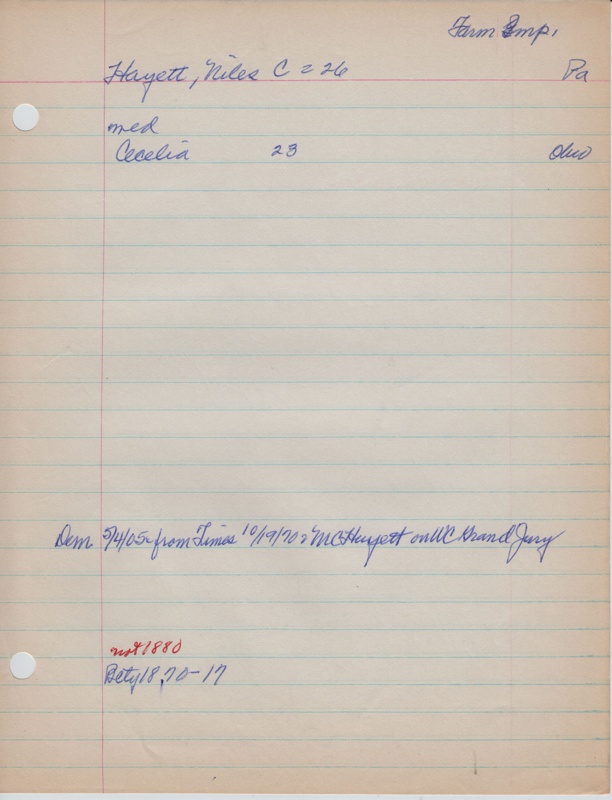 Farm Imp.
Hayett, Niles C = 26 Pa
med
Cecelia 23 Ohio
Dem 5/4/05 - from Times 10/19/70 = MCHayett on UC Grand Jury
not 1880
Bety 18,70-17